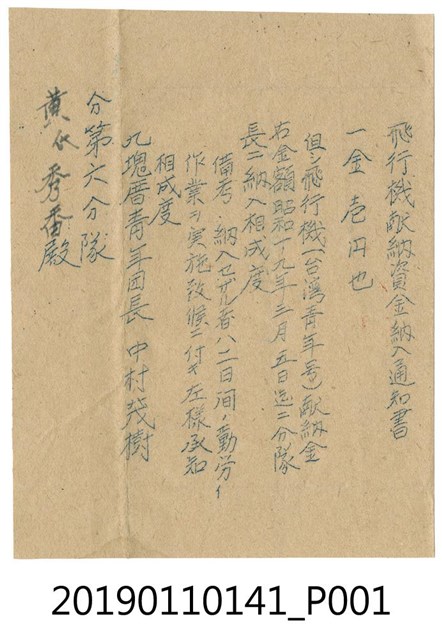 飛行機献納資金納入通知書
一金壱円也
但シ飛行機(台湾青年号)献納金
右金額昭和十九年三月五日迄ニ分隊
長ニ納入相成度
備考 納入セザル者ハ二日間ノ勤労
作業ヲ実施致候ニ付キ左様承知
相成度
九塊厝青年団長 中村茂樹
分第六分隊
黄氏秀番殿
20190110141_P001